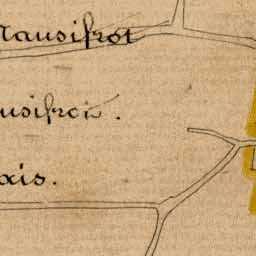 Mausifrot
usifroi.
xis.